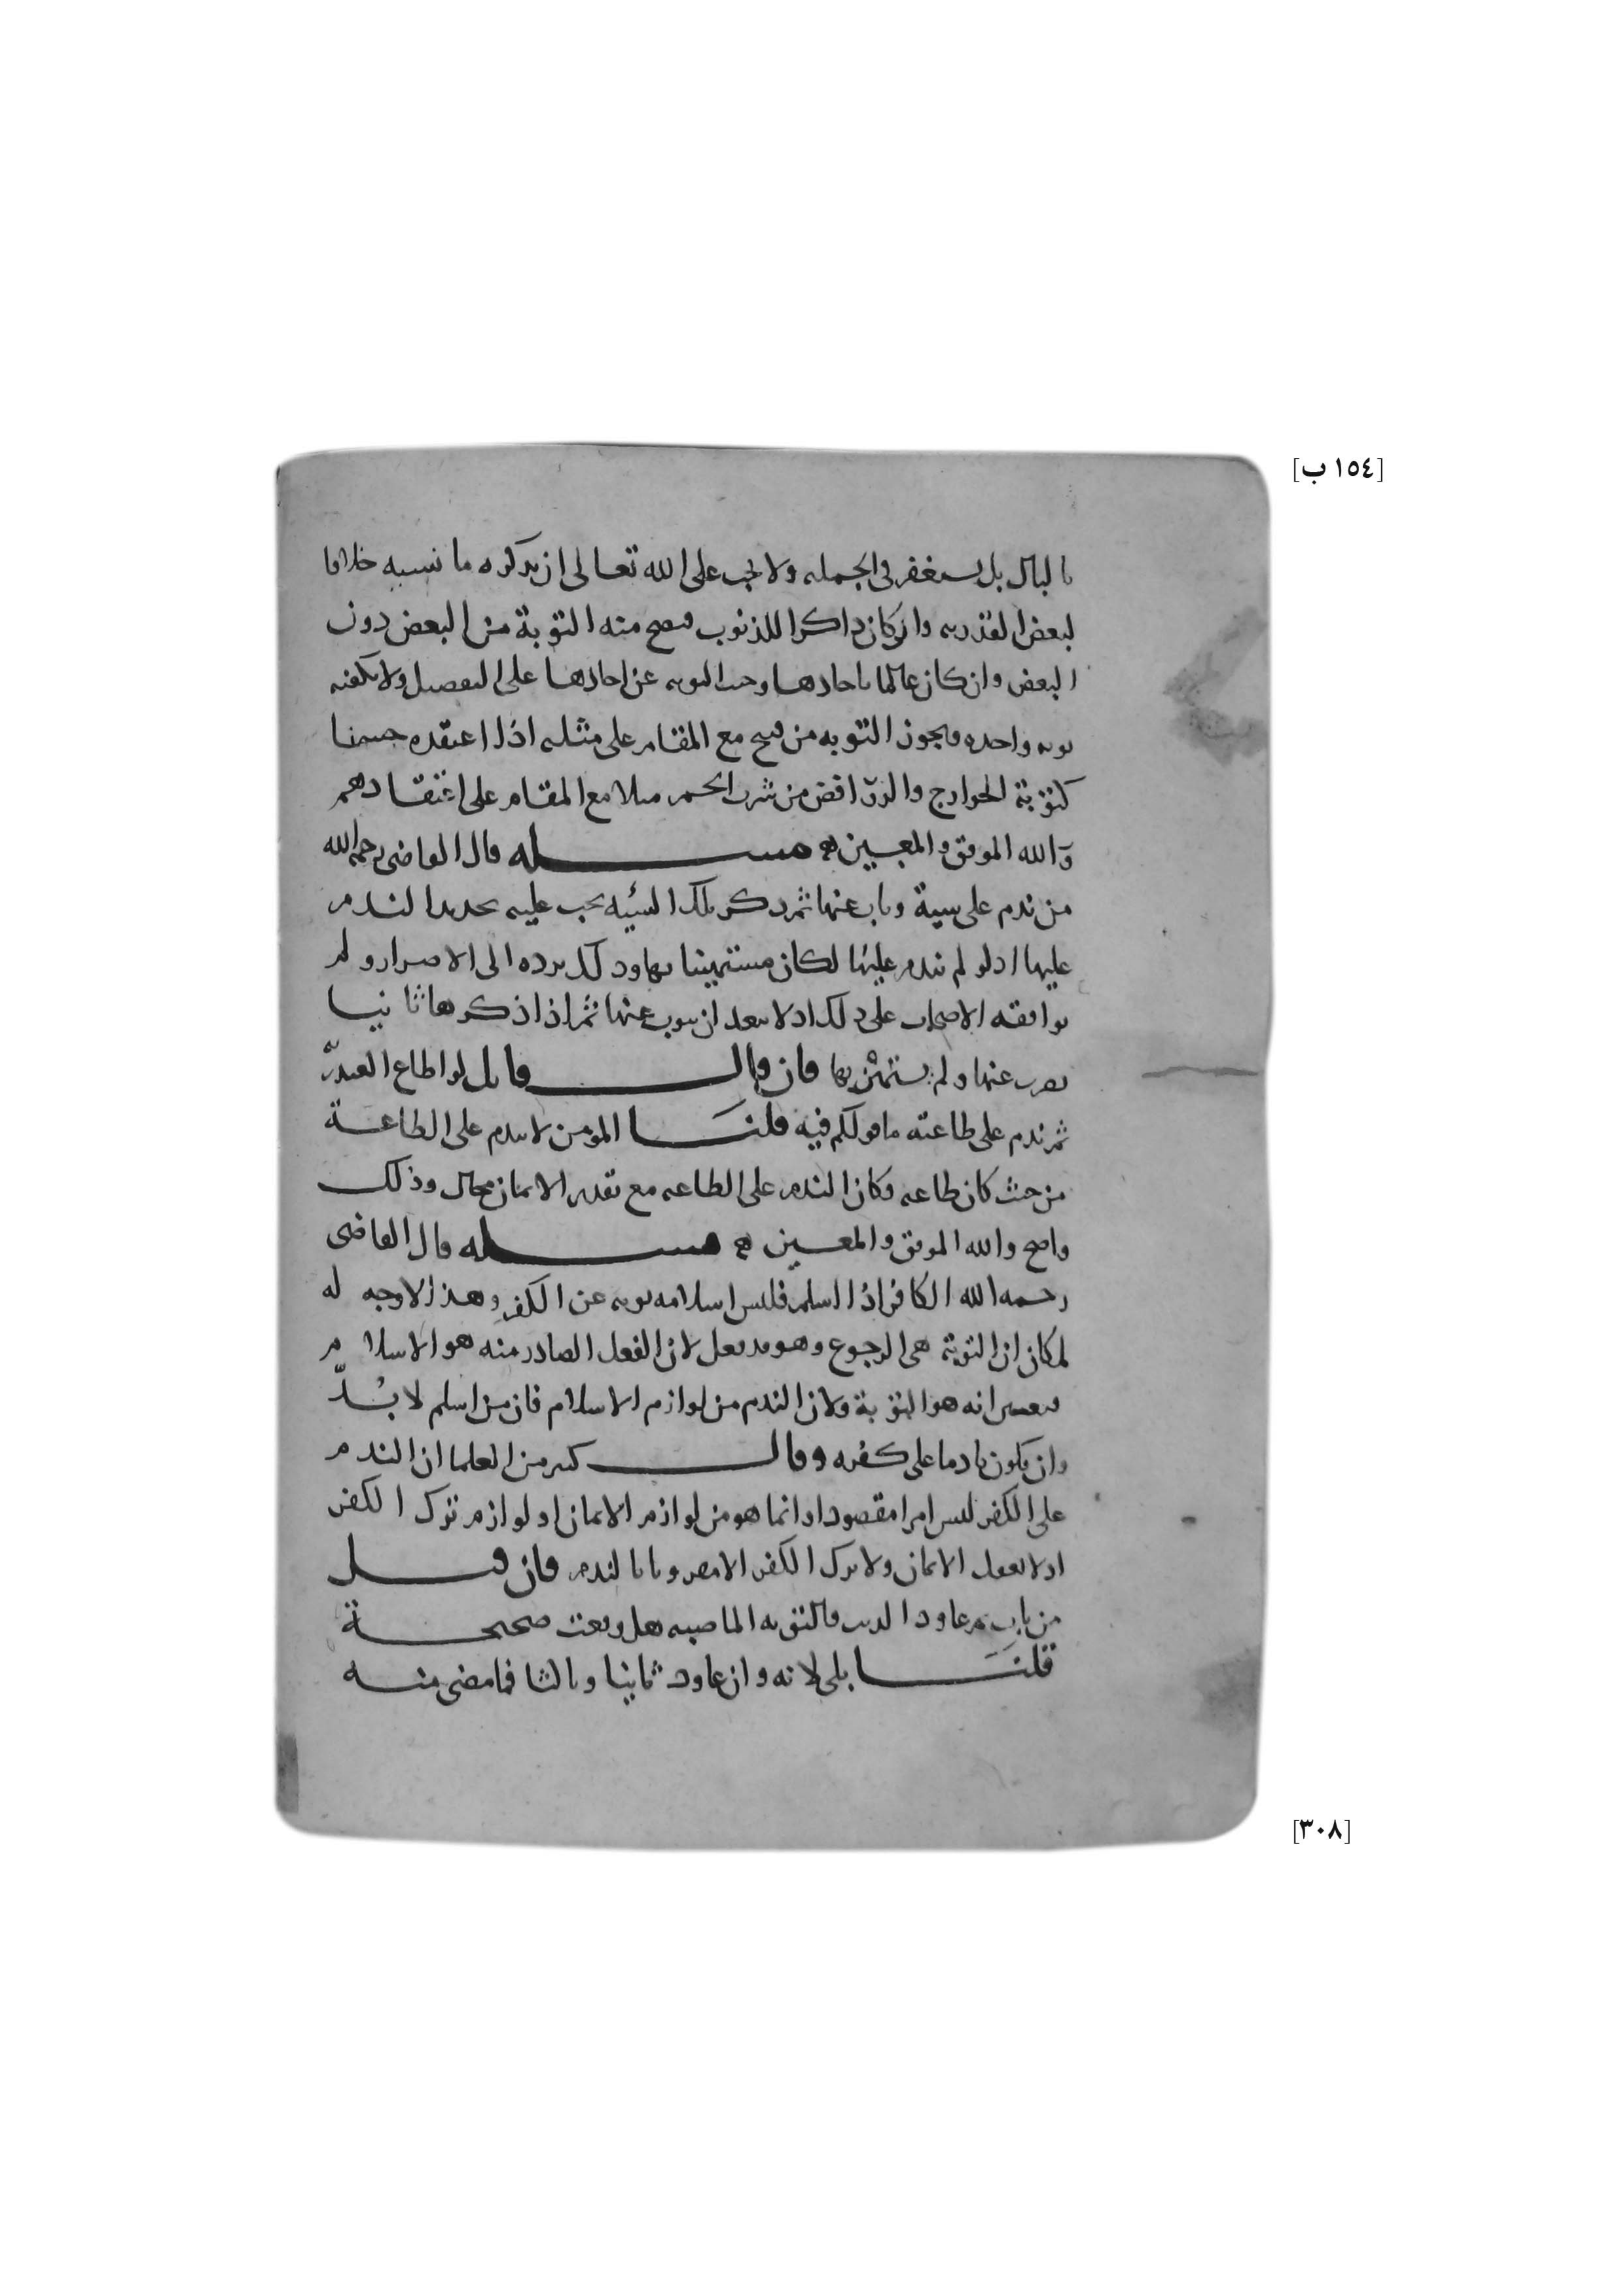 [١٥٤ ب]
بالبال بل يستغفر في الجملة ولا يجب على الله تعالى ان يذكره ما نسيه خلافا
لبعض القدرية وان كان ذاكرا للذنوب فيصح منه التوبة من البعض دون
البعض وان كان عالما باحادها وجب التوبة عن احادها على التفصيل ولا يكفيه
توبة واحدة ويجوز التوبة من قبيح مع المقام على مثله اذا اعتقده حسنا
كتوبة الخوارج والروافض من شرب الخمر مثلا مع المقام على اعتقادهم
والله الموفق والمعين مسله قال القاضي رحمه الله
من ندم على سية وتاب عنها ثم ذكر تلك السيئة يجب عليه تجديد الندم
عليها اذ لو لم يندم عليها لكان مستهينا بها وذلك يرده الى الاصرار ولم
يوافقه الاصحاب على ذلك اذ لا يبعد ان يتوب عنها ثم اذا ذكرها ثانيا
يضرب عنها ولم يستهن بها فان قال قايل لو اطاع العبد
ثم ندم على طاعته ما قولكم فيه قلنا المؤمن لا يندم على الطاعة
من حيث كان طاعة وكان الندم على الطاعة مع تقدير الايمان محال وذلك
واضح والله الموفق والمعين مسله قال القاضي
رحمه الله الكافر اذا اسلم فليس اسلامه توبة عن الكفر وهذا لا وجه له
لمكان ان التوبة هي الرجوع وهو قد فعل لان الفعل الصادر منه هو الاسلام
فتعين انه هو التوبة ولان الندم من لوازم الاسلام فان من اسلم لا بد
وان يكون نادما على كفره وقال كثير من العلما ان الندم
على الكفر ليس امرا مقصودا وانما هو من لوازم الايمان او لوازم ترك الكفر
اذ لا يعقل الايمان ولا ترك الكفر الا مقرونا بالندم فان قيل
من تاب ثم عاود الذنب فالتوبة الماضية هل وقعت صحيحة
قلنا بلى لانه وان عاود ثانيا وثالثا فما مضى منه
[٣٠٨]